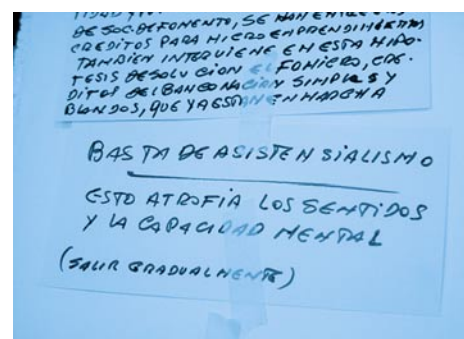 DE SOC. DE FOMENTO, SE HAN
CREDITOS PARA MICRO EMPRENDIMIENTOS
TAMBIEN INTERVIENE EN ESTA HIPO-
TESIS DE SOLUCION EL FOMICRO, CRE-
DITOS DEL BANCO NACION SIMPLES Y
BLANDOS, QUE YA ESTAN EN MARCHA
BASTA DE ASISTENSIALISMO
ESTO ATROFIA LOS SENTIDOS
Y LA CAPACIDAD MENTAL
(SALIR GRADUALMENTE)